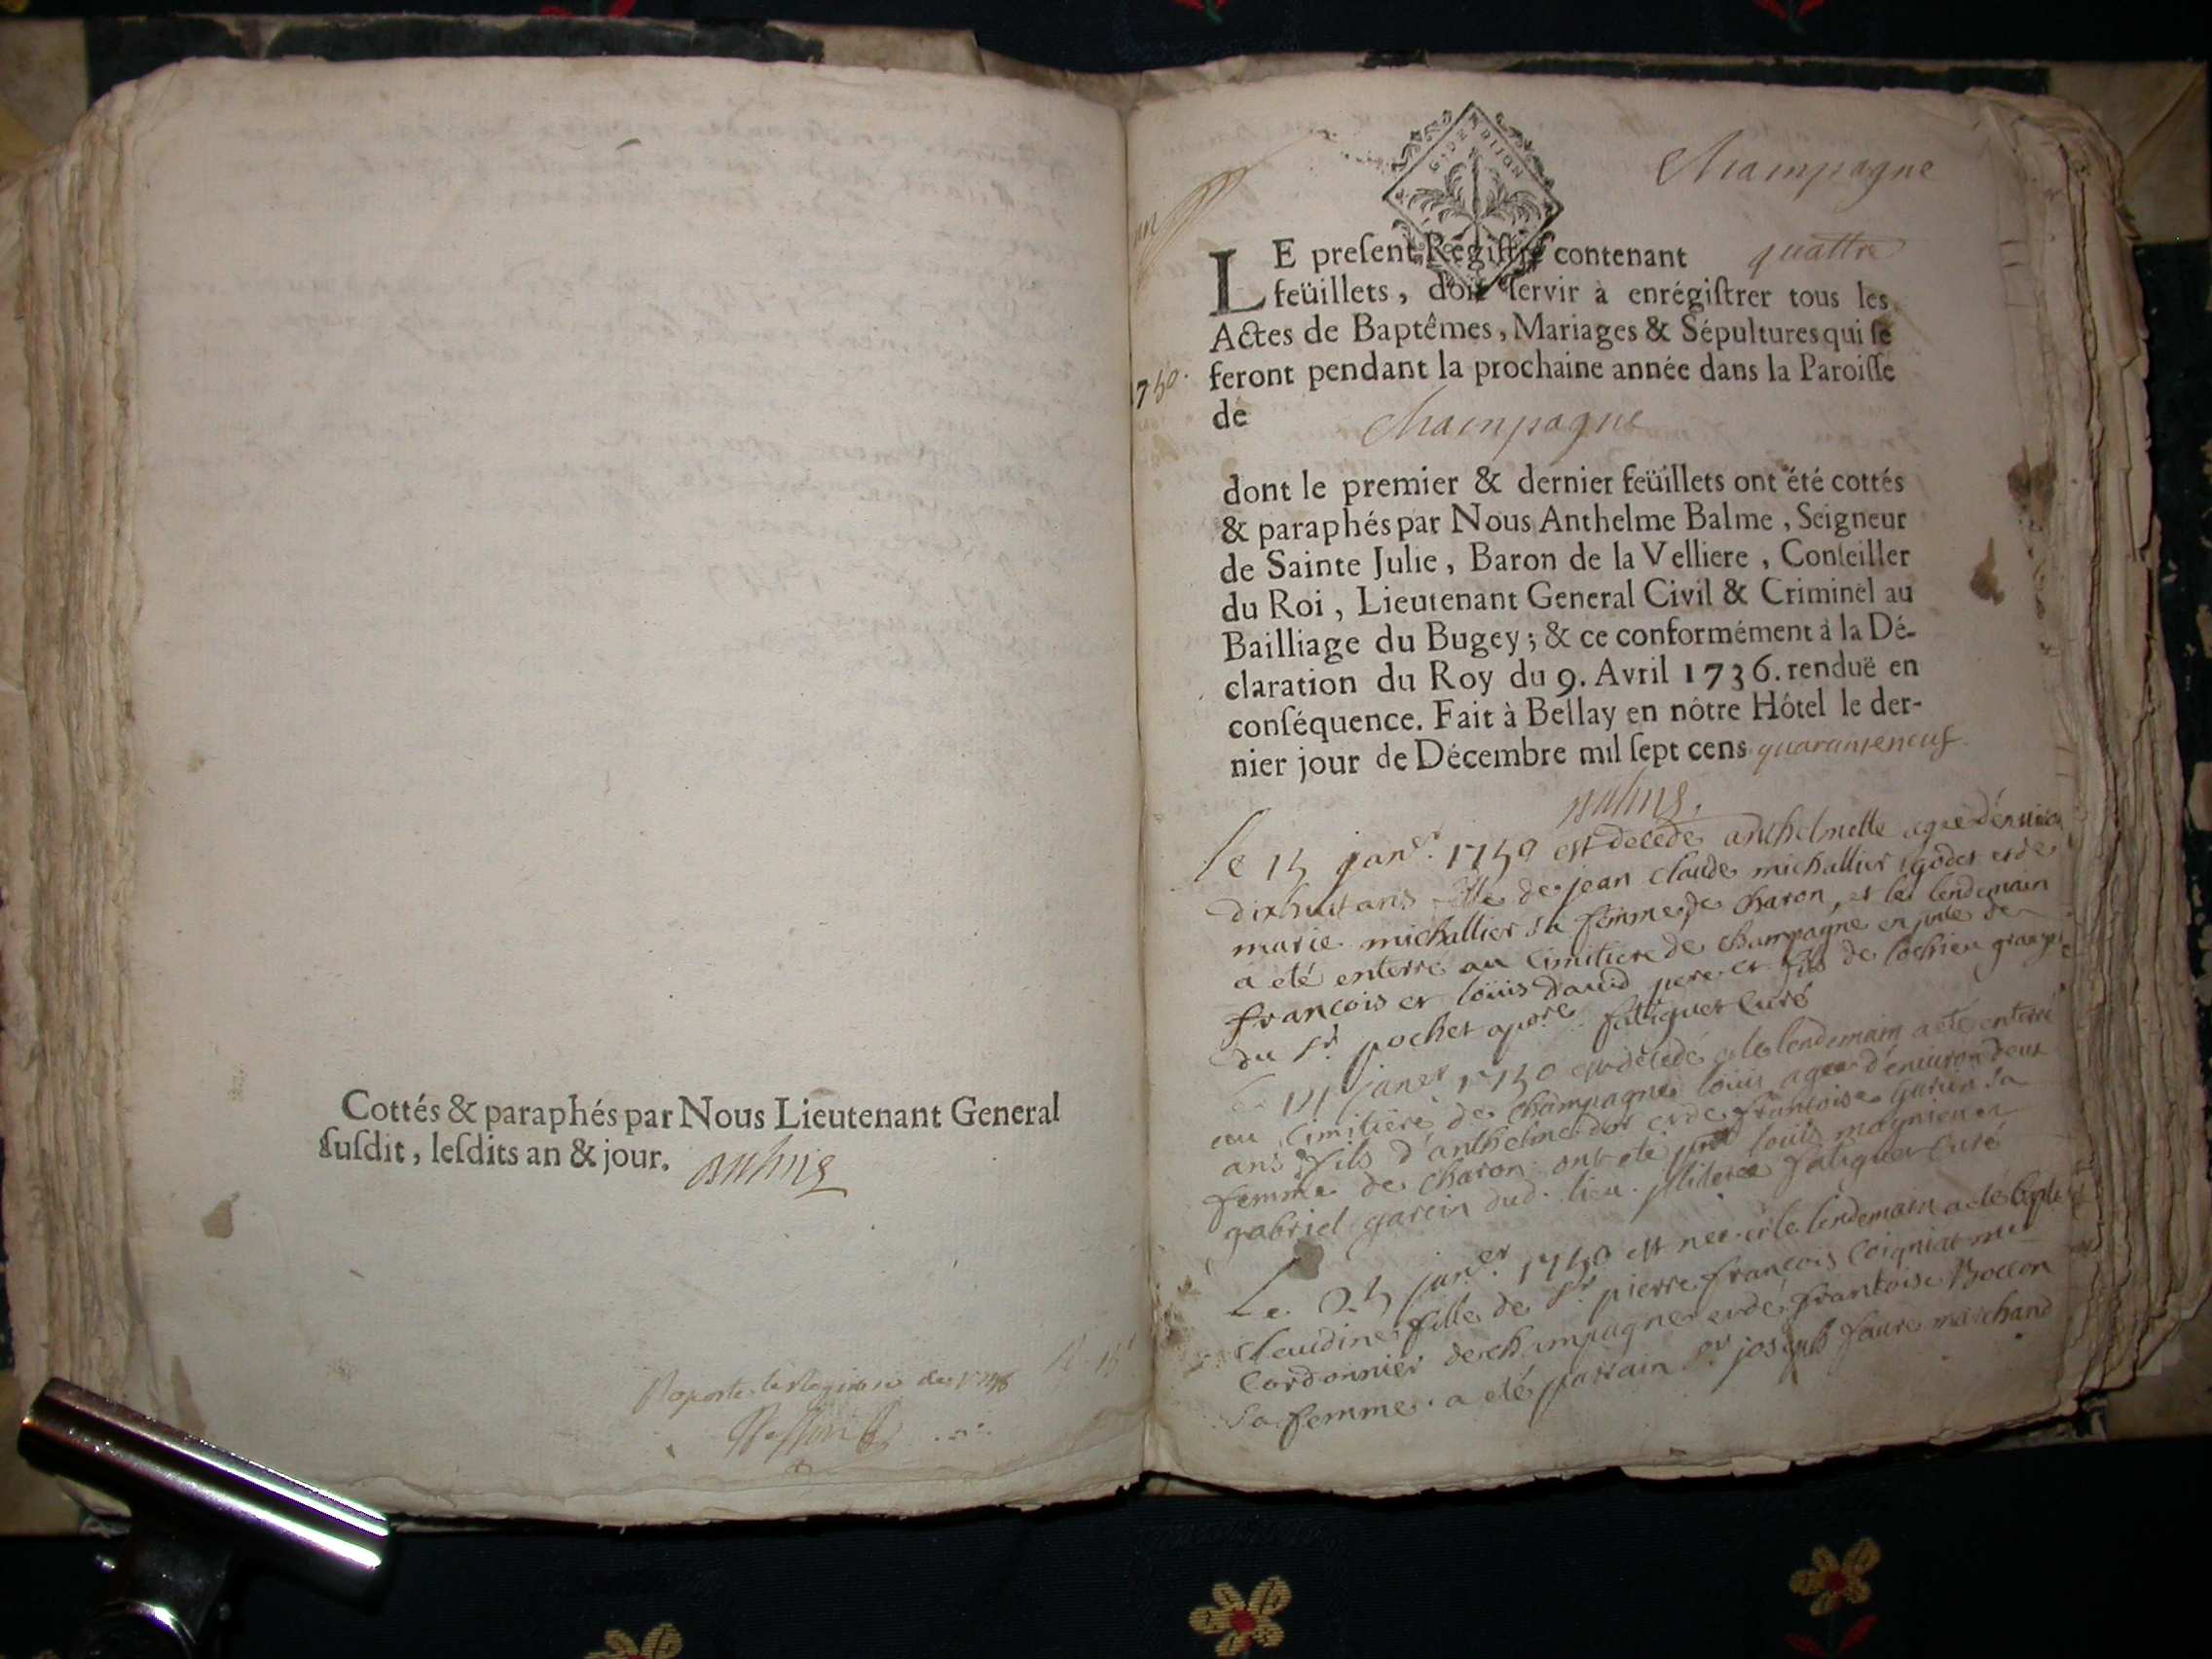 Cottés & paraphés par Nous Lieutenant General
ſuſdit, leſdits an & jour.
G. DE DIJON
Champagne
LE preſent Regiſtre contenant quattre
feüillets, doit ſervir à enrégiſtrer tous les
Actes de Baptêmes, Mariages & Sépultures qui ſe
feront pendant la prochaine année dans la Paroiſſe
1750.
de Champagne
dont le premier & dernier feüillets ont été cottés
& paraphés par Nous Anthelme Balme, Seigneur
de Sainte Julie, Baron de la Velliere, Conſeiller
du Roi, Lieutenant General Civil & Criminel au
Bailliage du Bugey; & ce conformément à la Dé-
claration du Roy du 9. Avril 1736. renduë en
conſéquence. Fait à Bellay en nôtre Hôtel le der-
nier jour de Décembre mil ſept cens quaranteneuf
Le 15 janer. 1750 est decede anthelmette agee d'environ
dixhuit ans fille de jean claude michallier godet et de
marie michallier sa femme de charon, et le lendemain
a eté enterré au cimitiere de champagne en pnce de
francois et loüis david pere et fils de lochieu
du sr. pochet falquet Curé
janer 1750 est décedé et le lendemain a eté enterré
au cimitiere de champagne loüis agee d'environ deux
ans fils d'anthelme et de francoise garein sa
femme de charon. ont eté loüis magnien et
gabriel garein dud. lieu. falquet Curé
Le 25 janer. 1750 est née et le lendemain a eté
claudine fille de sr pierre francois Coigniat
Cordonnier de champagne et de francoise Boccon
sa femme. a eté parrain sr joseph faure marchand